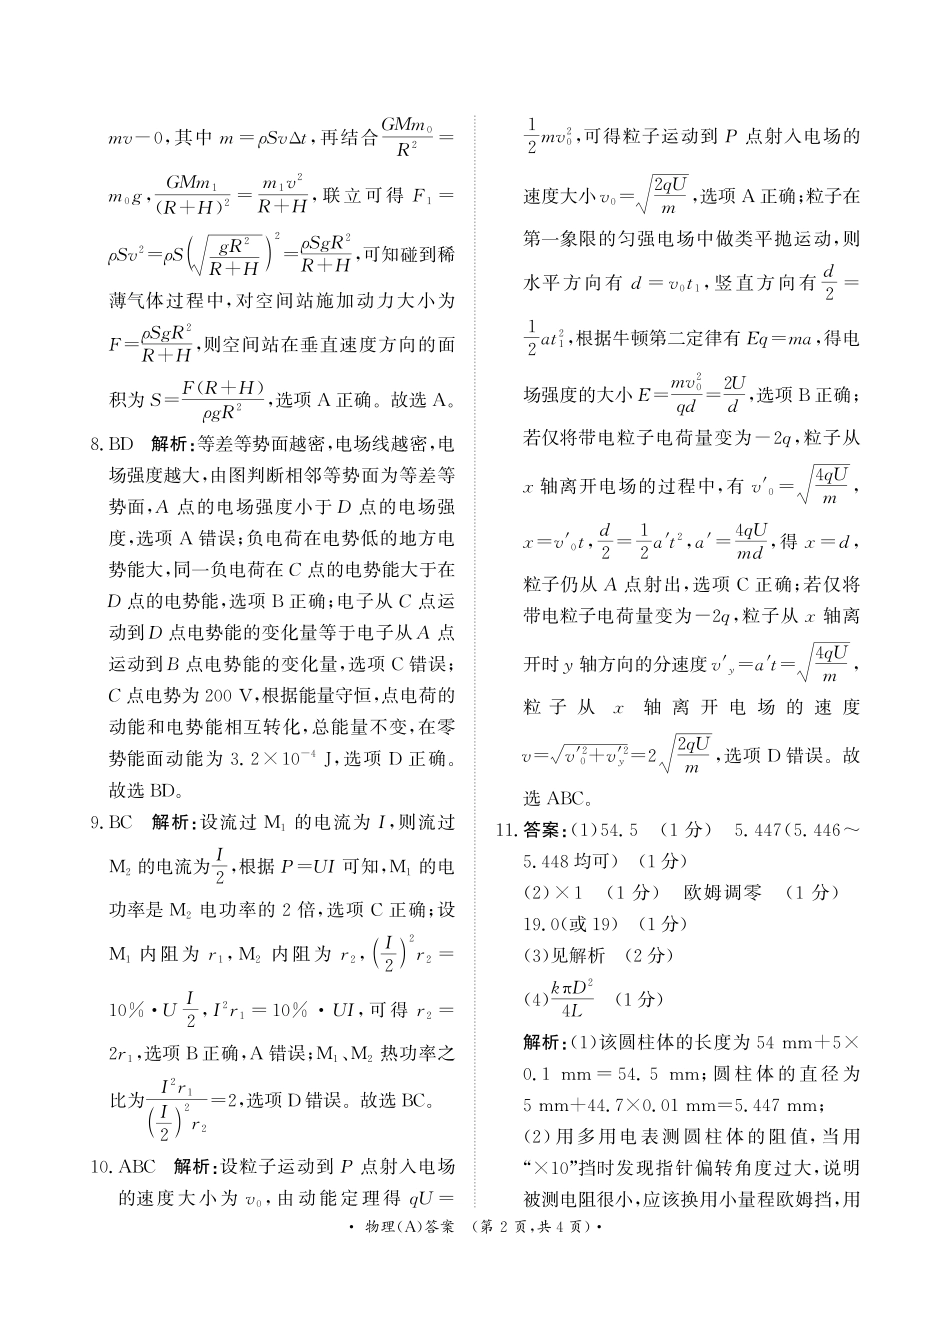 mv－0,其中 m＝ρSvΔt,再结合 GMm₀/R²＝
m₀g, GMm₁/(R＋H)²＝m₁v²/(R＋H),联立可得 F₁＝
ρSv²＝ρS(√(gR²/(R＋H)))²＝ρSgR²/(R＋H),可知碰到稀
薄气体过程中,对空间站施加动力大小为
F＝ρSgR²/(R＋H),则空间站在垂直速度方向的面
积为 S＝F(R＋H)/(ρgR²),选项 A 正确。故选 A。
8. BD 解析:等差等势面越密,电场线越密,电
场强度越大,由图判断相邻等势面为等差等
势面,A 点的电场强度小于 D 点的电场强
度,选项 A 错误;负电荷在电势低的地方电
势能大,同一负电荷在 C 点的电势能大于在
D 点的电势能,选项 B 正确;电子从 C 点运
动到 D 点电势能的变化量等于电子从 A 点
运动到 B 点电势能的变化量,选项 C 错误;
C 点电势为 200 V,根据能量守恒,点电荷的
动能和电势能相互转化,总能量不变,在零
势能面动能为 3. 2×10⁻⁴ J,选项 D 正确。
故选 BD。
9. BC 解析:设流过 M₁ 的电流为 I,则流过
M₂ 的电流为 I/2,根据 P＝UI 可知,M₁ 的电
功率是 M₂ 电功率的 2 倍,选项 C 正确;设
M₁ 内阻为 r₁,M₂ 内阻为 r₂,(I/2)²r₂＝
10％·U I/2,I²r₁＝10％·UI,可得 r₂＝
2r₁,选项 B 正确,A 错误;M₁、M₂ 热功率之
比为 I²r₁/((I/2)²r₂)＝2,选项 D 错误。故选 BC。
10. ABC 解析:设粒子运动到 P 点射入电场
的速度大小为 v₀,由动能定理得 qU＝
1/2 mv₀²,可得粒子运动到 P 点射入电场的
速度大小 v₀＝√(2qU/m),选项 A 正确;粒子在
第一象限的匀强电场中做类平抛运动,则
水平方向有 d＝v₀t₁,竖直方向有 d/2＝
1/2 at₁²,根据牛顿第二定律有 Eq＝ma,得电
场强度的大小 E＝mv₀²/(qd)＝2U/d,选项 B 正确;
若仅将带电粒子电荷量变为－2q,粒子从
x 轴离开电场的过程中,有 v′₀＝√(4qU/m),
x＝v′₀t, d/2＝1/2 a′t²,a′＝4qU/(md),得 x＝d,
粒子仍从 A 点射出,选项 C 正确;若仅将
带电粒子电荷量变为－2q,粒子从 x 轴离
开时 y 轴方向的分速度 v′y＝a′t＝√(4qU/m),
粒子从 x 轴离开电场的速度
v＝√(v′₀²＋v′y²)＝2√(2qU/m),选项 D 错误。故
选 ABC。
11. 答案:(1)54. 5 (1 分) 5. 447(5. 446～
5. 448 均可) (1 分)
(2)×1 (1 分) 欧姆调零 (1 分)
19. 0(或 19) (1 分)
(3)见解析 (2 分)
(4)kπD²/4L (1 分)
解析:(1)该圆柱体的长度为 54 mm＋5×
0. 1 mm＝54. 5 mm;圆柱体的直径为
5 mm＋44. 7×0. 01 mm＝5. 447 mm;
(2)用多用电表测圆柱体的阻值,当用
“×10”挡时发现指针偏转角度过大,说明
被测电阻很小,应该换用小量程欧姆挡,用
· 物理(A)答案 (第 2 页,共 4 页)·